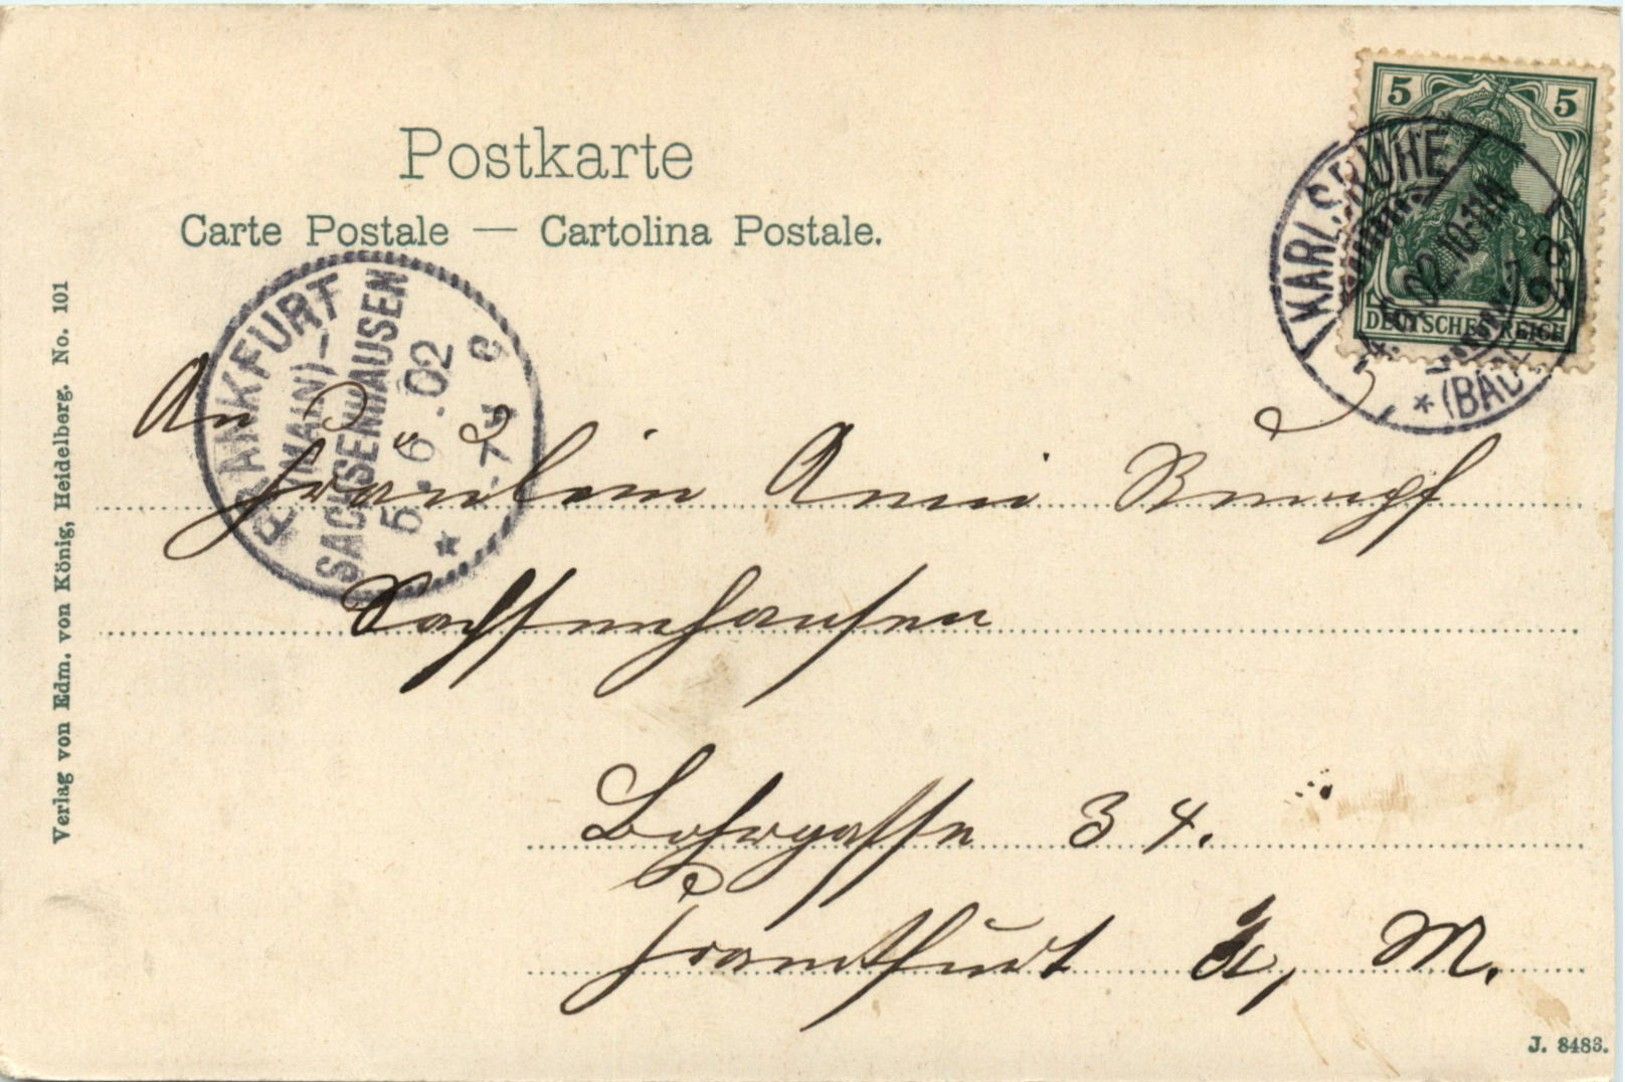 Postkarte
Carte Postale — Cartolina Postale.
5 5
DEUTSCHES REICH
KARLSRUHE
02. 10-11N
* (BAD
FRANKFURT
(MAIN)-
SACHSENHAUSEN
5. 6. 02
*
Verlag von Edm. von König, Heidelberg. No. 101
An
Fräulein Anni Rumpf
Sachsenhausen
34.
Frankfurt a, M.
J. 8483.